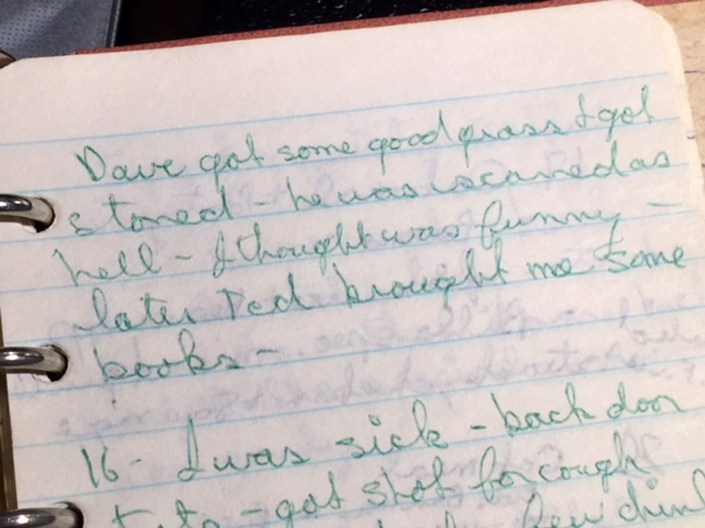 Dave got some good grass & got
stoned - he was scared as
hell - I thought was funny -
later Ted brought me some
books -
16 - I was sick - back door
- got shot for cough